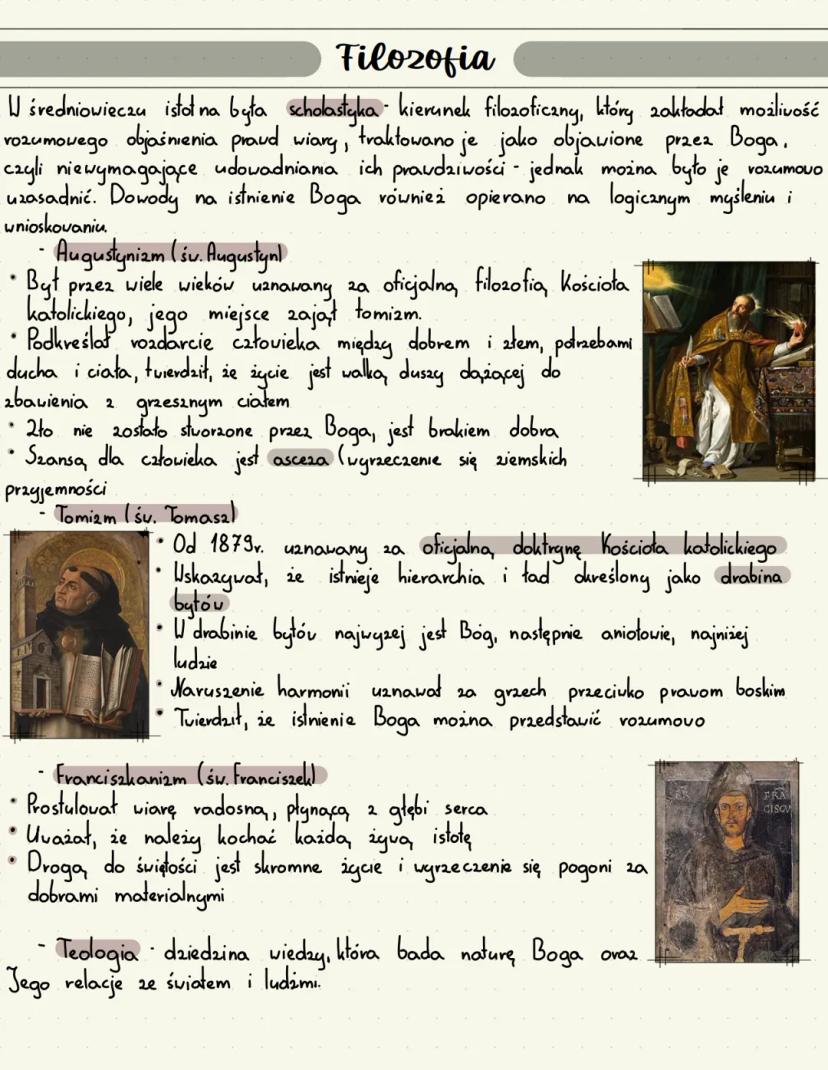 Filozofia
W średniowieczu istotna była scholastyka - kierunek filozoficzny, który zakładał możliwość
rozumowego objaśnienia prawd wiary, traktowano je jako objawione przez Boga,
czyli niewymagające udowadniania ich prawdziwości - jednak można było je rozumowo
uzasadnić. Dowody na istnienie Boga również opierano na logicznym myśleniu i
wnioskowaniu.
- Augustynizm (św. Augustyn)
• Był przez wiele wieków uznawany za oficjalną filozofią Kościoła
katolickiego, jego miejsce zajął tomizm.
• Podkreślał rozdarcie człowieka między dobrem i złem, potrzebami
ducha i ciała, twierdził, że życie jest walką duszy dążącej do
zbawienia z grzesznym ciałem
• Zło nie zostało stworzone przez Boga, jest brakiem dobra
• Szansą dla człowieka jest asceza (wyrzeczenie się ziemskich
przyjemności
- Tomizm (św. Tomasz)
• Od 1879r. uznawany za oficjalną doktrynę Kościoła katolickiego
• Wskazywał, że istnieje hierarchia i ład określony jako drabina
bytów
• W drabinie bytów najwyzej jest Bóg, następnie aniołowie, najniżej
ludzie
• Naruszenie harmonii uznawał za grzech przeciwko prawom boskim
• Twierdził, że istnienie Boga można przedstawić rozumowo
- Franciszkanizm (św. Franciszek)
• Prostulował wiarę radosną, płynącą z głębi serca
• Uważał, że należy kochać każdą żywą istotę
• Drogą do świętości jest skromne życie i wyrzeczenie się pogoni za
dobrami materialnymi
FRA
CISCV
- Teologia - dziedzina wiedzy, która bada naturę Boga oraz
Jego relacje ze światem i ludźmi.